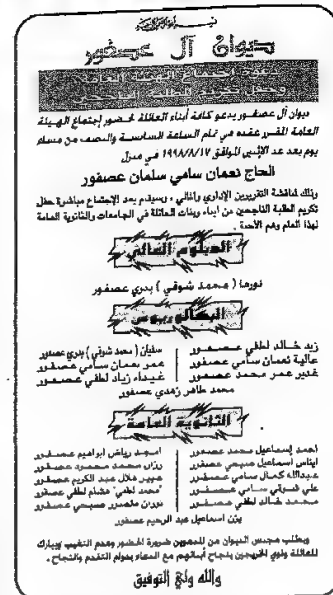 بسم الله الرحمن الرحيم
ديوان آل عصفور
دعوة إجتماع الهيئة العامة
وحفل تكريم الطلبة الناجحين
ديوان آل عصفور يدعو كافة أبناء العائلة لحضور إجتماع الهيئة
العامة المقرر عقده في تمام الساعة السادسة والنصف من مساء
يوم بعد غد الإثنين الموافق ١٩٩٨/٨/١٧ في منزل
الحاج نعمان سامي سلمان عصفور
وذلك لمناقشة التقريرين الإداري والمالي ، وسيقام بعد الإجتماع مباشرة حفل
تكريم الطلبة الناجحين من أبناء وبنات العائلة في الجامعات والثانوية العامة
لهذا العام وهم الأحبة .
الدبلوم العالي
نورها ( محمد شوقي ) بدري عصفور
البكالوريوس
زيد خالد لطفي عصفور سفيان ( محمد شوقي ) بدري عصفور
عالية نعمان سامي عصفور عمر نعمان سامي عصفور
غدير عمر محمد عصفور غيداء زياد لطفي عصفور
محمد طاهر زهدي عصفور
الثانوية العامة
احمد إسماعيل محمد عصفور امجد رياض ابراهيم عصفور
ايناس اسماعيل صبحي عصفور رزان محمد محمود عصفور
عبدالله كمال سامي عصفور عبير هلال عبد الكريم عصفور
علي شوقي سامي عصفور "محمد لطفي" هشام لطفي عصفور
محمد خالد لطفي عصفور نوران منصور صبحي عصفور
يزن اسماعيل عبد الرحيم عصفور
ويطلب مجلس الديوان من المدعوين ضرورة الحضور وعدم التغيب ويبارك
للعائلة وذوي الخريجين بنجاح أبنائهم مع الدعاء بدوام التقدم والنجاح .
والله ولي التوفيق